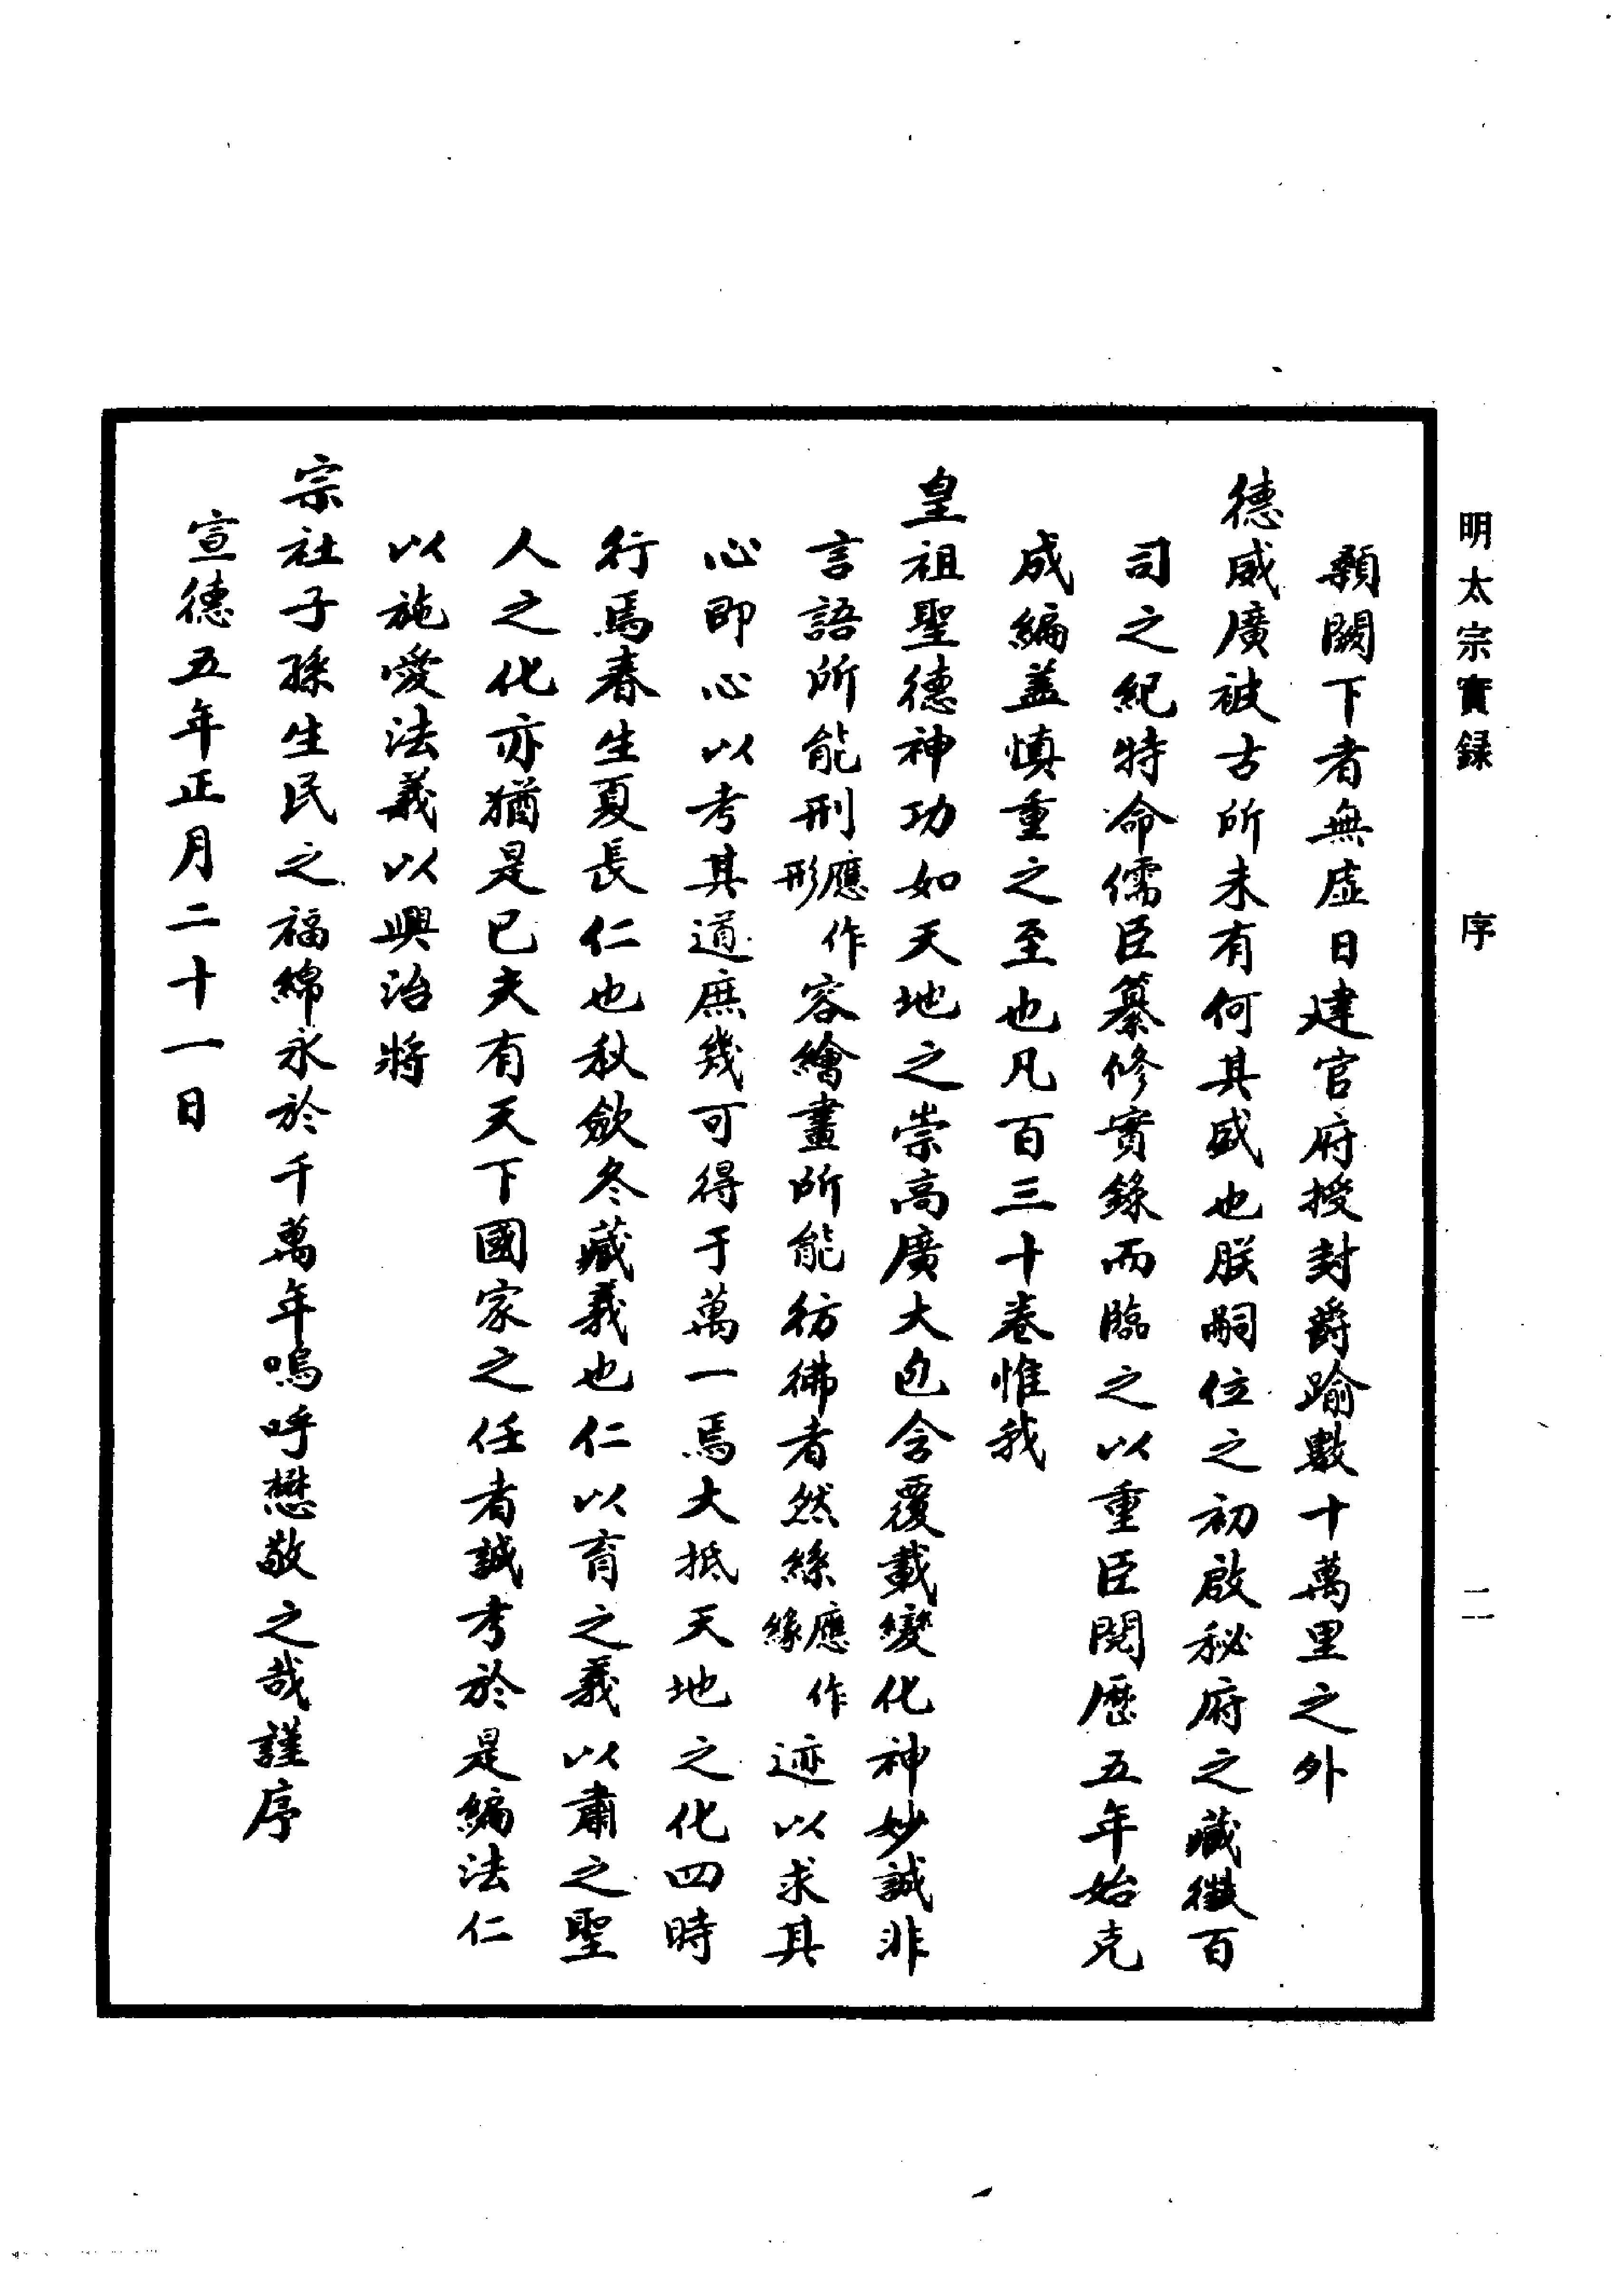 明太宗實録　序　二
顙闕下者無虛日建官府授封爵踰數十萬里之外
德威廣被古所未有何其盛也朕嗣位之初啟秘府之藏徵百
司之紀特命儒臣纂修實錄而臨之以重臣閱歷五年始克
成編盖慎重之至也凡百三十卷惟我
皇祖聖德神功如天地之崇高廣大包含覆載變化神妙誠非
言語所能刑應作形容繪畫所能彷彿者然絲應作緣迹以求其
心即心以考其道庶幾可得于萬一焉大抵天地之化四時
行焉春生夏長仁也秋斂冬藏義也仁以育之義以肅之聖
人之化亦猶是已夫有天下國家之任者誠考於是編法仁
以施愛法義以興治將
宗社子孫生民之福綿永於千萬年嗚呼懋敬之哉謹序
宣德五年正月二十一日